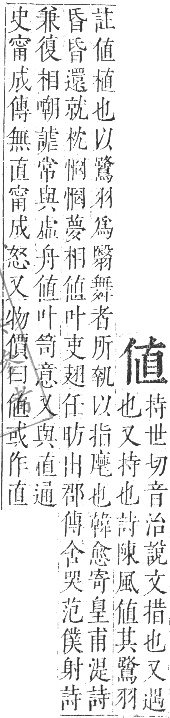 値
持世切音治說文措也又遇
也又持也詩陳風値其鷺羽
註値植也以鷺羽爲翳舞者所執以指麾也韓愈寄皇甫湜詩
昏昏還就枕惘惘夢相値叶吏翅任昉出郡傳舍哭范僕射詩
兼復相嘲謔常與虛舟値叶笥意又與直通
史甯成傳無直甯成怒又物價曰値或作直